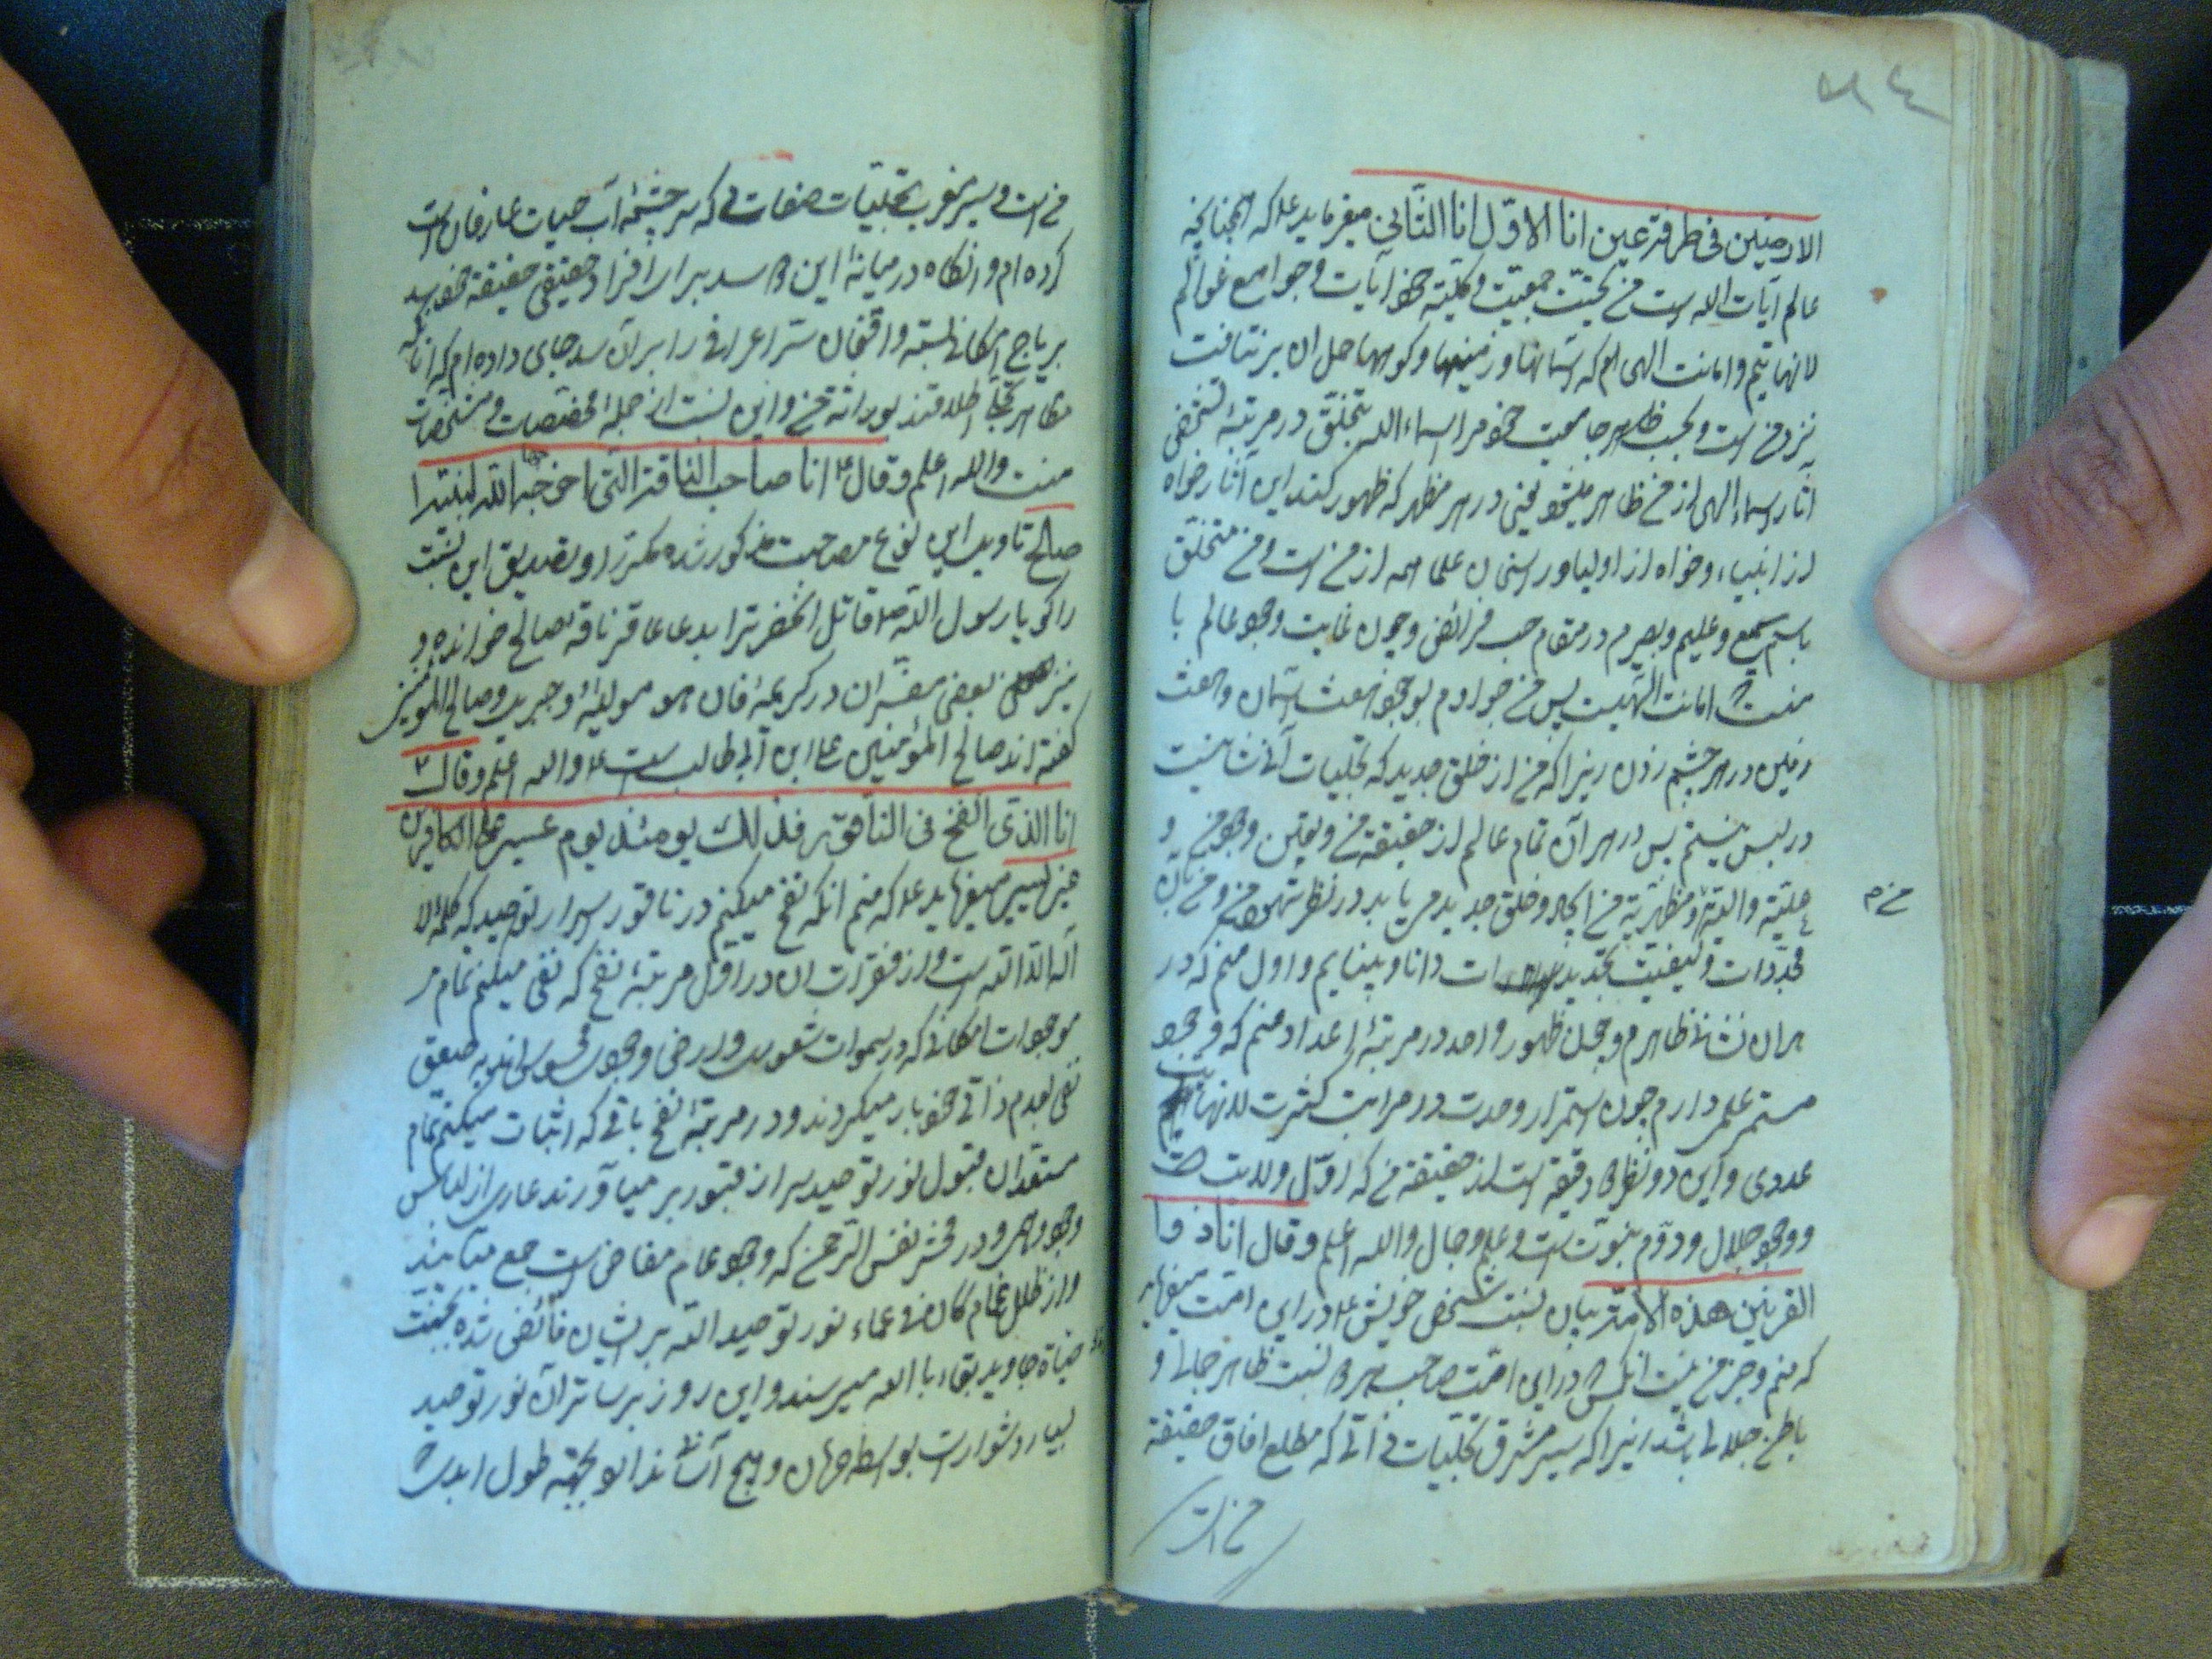 ٥٤
الارضین فی طرفة عین انا الاول انا الثانی میفرماید علا که همچنانچه
عالم آیات الله است من بحیثیت جمعیت و کلیة خود آیات و جوامع عوالم
لانهایتیم و امانت الهی ام که آسمانها و زمینها و کوهها حمل آن برنتافت
نزد من است و بحسب ظاهر جامعیت خود مر اسماء الله متخلق در مرتبۀ تشخصی
آثار اسماء الهی از من ظاهر میشود یعنی در هر مظهر که ظهور کند این آثار خواه
از انبیاء و خواه از اولیا و راسخان علما همه از من است و من متخلق
باسم سمیع و علیم و بصیرم در مقام حب فرائض و چون غایت وجود عالم با
منست امانت الهیت پس من جوادم بوجود هفت آسمان و هفت
زمین در هر چشم زدن زیرا که من از خلق جدید که تجلیات آنست نیست
در لبس نیستم پس در هر آن تمام عالم از حقیقة من و بعین وجود من و
علیة و مظهریة من ایجاد و خلق جدید مییابد در نظر شهود من و من بآن
من م
مجددات و کیفیت تجدید دانا و بینایم و اول منم که در
هر آن نشاة ظاهرم و چون ظهور واحد در مرتبۀ اعداد منم که وجود
مستمر علمی دارم چون استمرار وحدت در مراتب کثرت لانهایت
عددی و این دو نظر دقیقه است از حقیقة من که اول ولایت است
و وجود جلال و دوم نبوت است و علم و جمال والله اعلم و قال انا ذو
القرنین هذه الامة بیان نسبت شخص خویش در این امت میفرماید
که منم و جز من نیست آنکس در این امت صاحب هر دو نسبت ظاهر جمالی و
باطن جلالی باشد زیرا که سیر مشرق تجلیات ذاتی که مطلع آفاق حقیقة
من است
من است و سیر مغرب تجلیات صفاتی که سرچشمۀ آب حیات عارفان است
کرده ام و آنگاه در میانۀ این دو سد برابر افراد حقیقی حقیقة خود سد
بر یاجوج امکان بسته و واقفان سر اعرافی را بر آن سد جای داده ام که آنان
مظاهر تجلی اطلاقند بوراثة من و این نسبت از جملۀ مختصات و مشخصات
منست والله اعلم و قال انا صاحب الناقة التی اخرجها الله لنبیه
صالح تاویل این نوع مصاحبت مذکور شده مکررا و تصدیق این نسبت
را گویا رسول الله قاتل آنحضرت را بدعا عاقر ناقۀ صالح خوانده و
نیز بعضی مفسران در کریمۀ فان هو مولیه و جبریل و صالح المؤمنین
گفته اند صالح المؤمنین علی ابن ابی طالب است والله اعلم و قال
انا الذی انفخ فی الناقور فذلک یومئذ یوم عسیر علی الکافرین
غیر یسیر میفرماید علا که منم آنکه نفخ میکنم در ناقور اسرار توحید که کلمۀ لا
اله الا الله است و از نقرات آن در اول مرتبۀ نفخ که نفی میکنم تمام
موجودات امکانی که در سموات شعور و ارض وجود محسوس اند به صعق
نفی بعدم ذاتی خود باز میگردند و در مرتبۀ نفخ باقی که اثبات میکنم تمام
مستعدان قبول نور توحید سر از قبور بر میآورند عاری از لباس
وجود وهمی و در محشر نفس الرحمن که وجود عام مفاض است جمع میآیند
و از ظلل غمام کان فی عماء نور توحید الله بر ایشان فائض شده بجنت
حیاة جاوید بقاء بالله میرسند و این روز بر ساتران نور توحید
بسیار دشوار است بواسطۀ حرمان و هیچ آسان نشود بجهة طول ابدیت